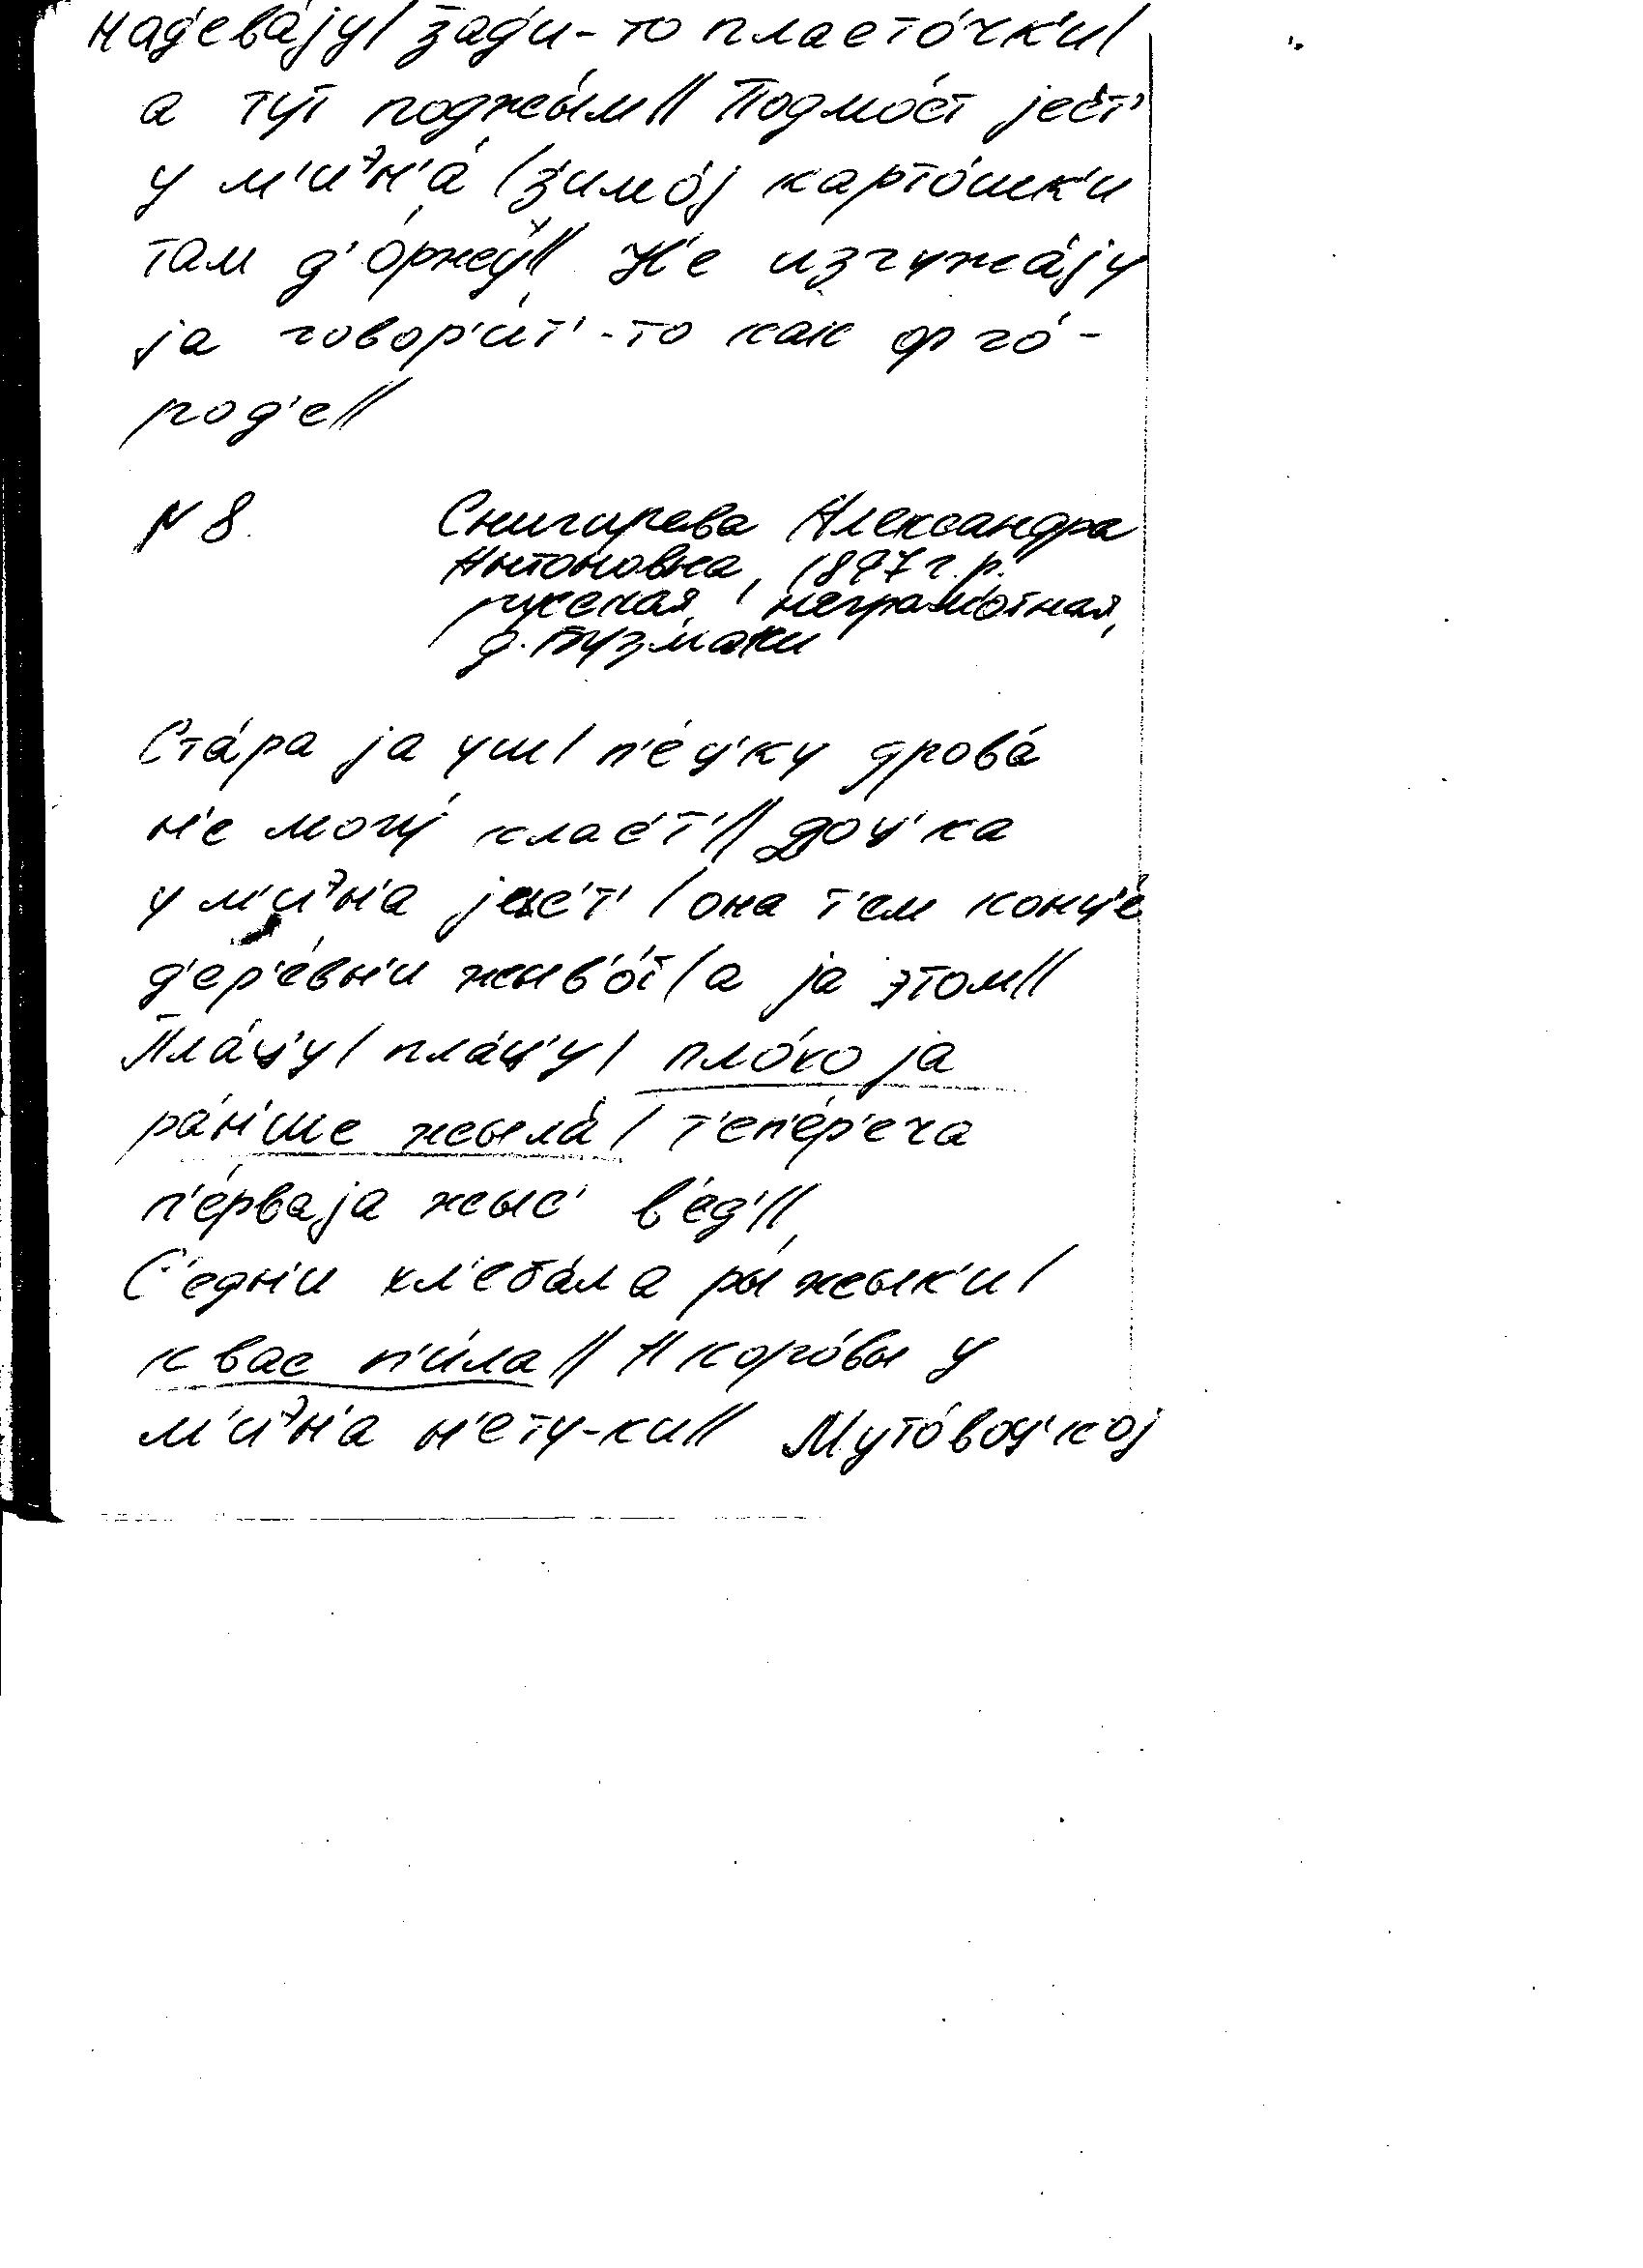 над'ева́jу/ зади-то пласто́чк'и/
а тут поджы́м// Подмо́ст jес'т'
у м'иэн'а́ /з'имо́j карто́шк'и
там д'о́ржу// Н'е изгужа́jу
jа говор'и́т'-то как ф го́-
род'е//
N 8. Снигирева Александра
Антоновна, 1897 г.р.
русская, неграмотная,
д. Тузмаки
Ста́ра jа уш/ п'е́ц'ку дрова́
н'е могу́ клас'т'// Доц'ка
у м'иэн'а jес'т' /она т'ем конц'е́
д'ер'е́вн'и жыв'о́т/а jа этом//
Пла́ц'у/ пла́ц'у/ пло́хо jа
ра́н'ше жыла́/ т'еп'е́р'еча
п'е́рваjа жыс' в'ед'//
С'едн'и хл'еба́ла ры́жык'и/
квас п'и́ла// А коро́вы у
м'иэн'а н'ету-ки// Муто́воц'коj